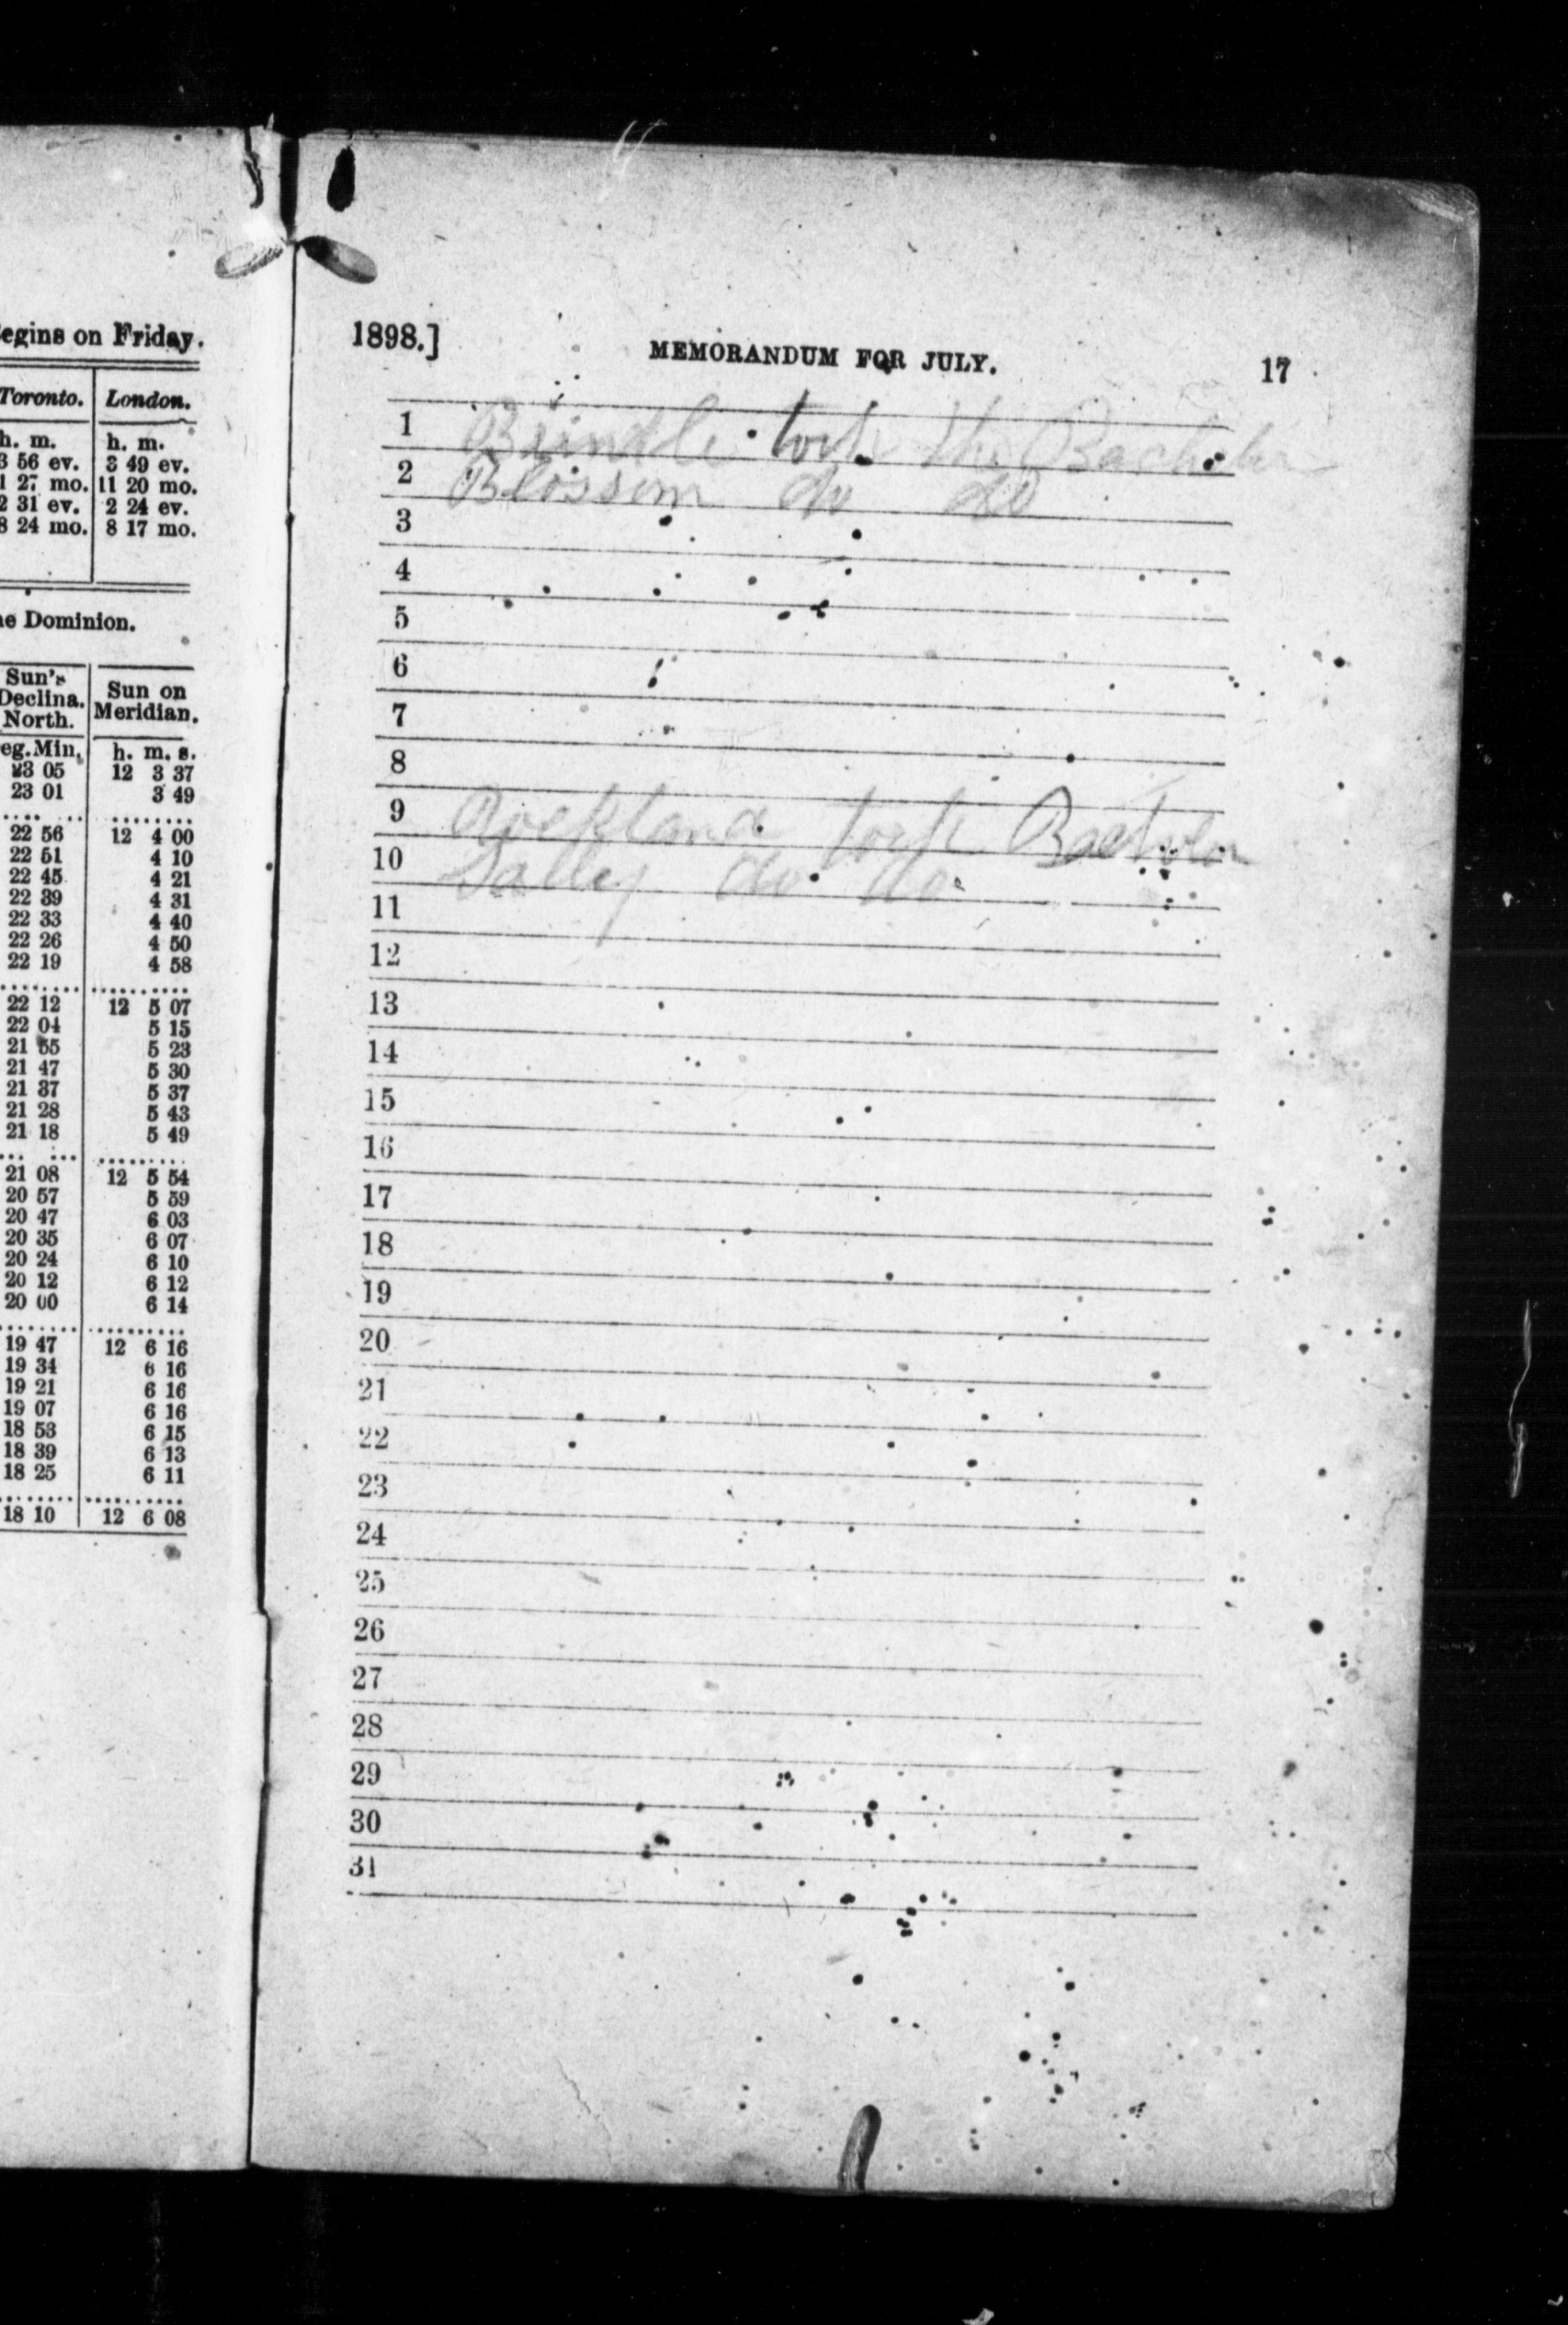 egins on Friday.
Toronto. London.
h. m. h. m.
3 56 ev. 3 49 ev.
1 27 mo. 11 20 mo.
2 31 ev. 2 24 ev.
8 24 mo. 8 17 mo.
e Dominion.
Sun's Declina. North. Sun on Meridian.
eg. Min. h. m. s.
23 05 12 3 37
23 01 3 49
22 56 12 4 00
22 51 4 10
22 45 4 21
22 39 4 31
22 33 4 40
22 26 4 50
22 19 4 58
22 12 12 5 07
22 04 5 15
21 55 5 23
21 47 5 30
21 37 5 37
21 28 5 43
21 18 5 49
21 08 12 5 54
20 57 5 59
20 47 6 03
20 35 6 07
20 24 6 10
20 12 6 12
20 00 6 14
19 47 12 6 16
19 34 6 16
19 21 6 16
19 07 6 16
18 53 6 15
18 39 6 13
18 25 6 11
18 10 12 6 08
1898.] MEMORANDUM FOR JULY. 17
1 Brindle took the Bacheler
2 Blossom do do
3
4
5
6
7
8
9 Rockland took Bachler
10 Salley do do
11
12
13
14
15
16
17
18
19
20
21
22
23
24
25
26
27
28
29
30
31